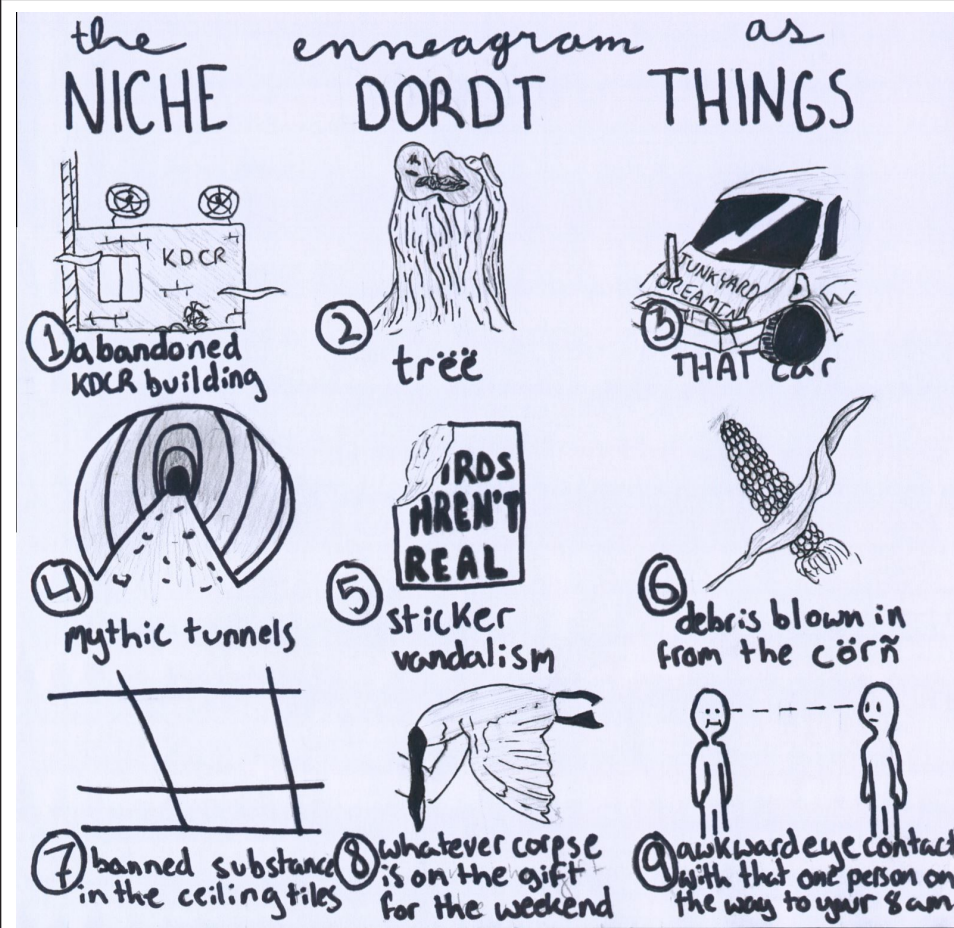 the enneagram as
NICHE DORDT THINGS
KDCR
1 abandoned
KDCR building
2
trëë
JUNKYARD
3
THAT car
4
mythic tunnels
IRDS
AREN'T
REAL
5 sticker
vandalism
6 debris blown in
from the cörñ
7 banned substance
in the ceiling tiles
8 whatever corpse
is on the gift
for the weekend
9 awkward eye contact
with that one person on
the way to your 8 am